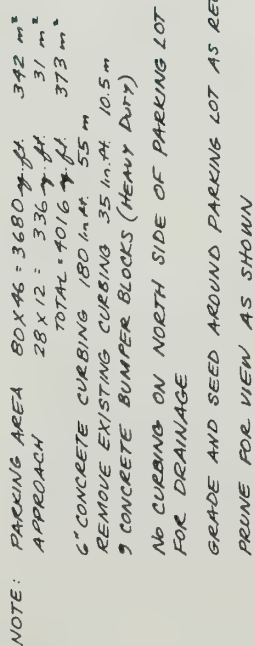 NOTE: PARKING AREA 80 X 46 = 3680 sq. ft. 342 m²
APPROACH 28 X 12 = 336 sq. ft. 31 m²
TOTAL = 4016 sq. ft. 373 m²
6" CONCRETE CURBING 180 lin. ft. 55 m
REMOVE EXISTING CURBING 35 lin. ft. 10.5 m
9 CONCRETE BUMPER BLOCKS (HEAVY DUTY)
NO CURBING ON NORTH SIDE OF PARKING LOT
FOR DRAINAGE
GRADE AND SEED AROUND PARKING LOT AS
PRUNE FOR VIEW AS SHOWN